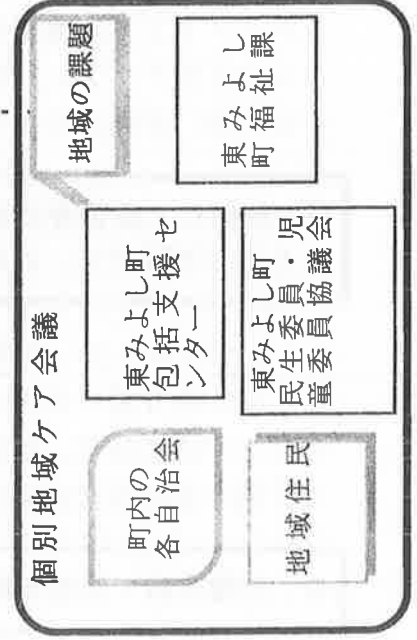 個別地域ケア会議
地域の課題
町内の
各自治会
東みよし町
包括支援セ
ンター
東みよし
町福祉課
地域住民
東みよし町
民生委員・児
童委員協議会